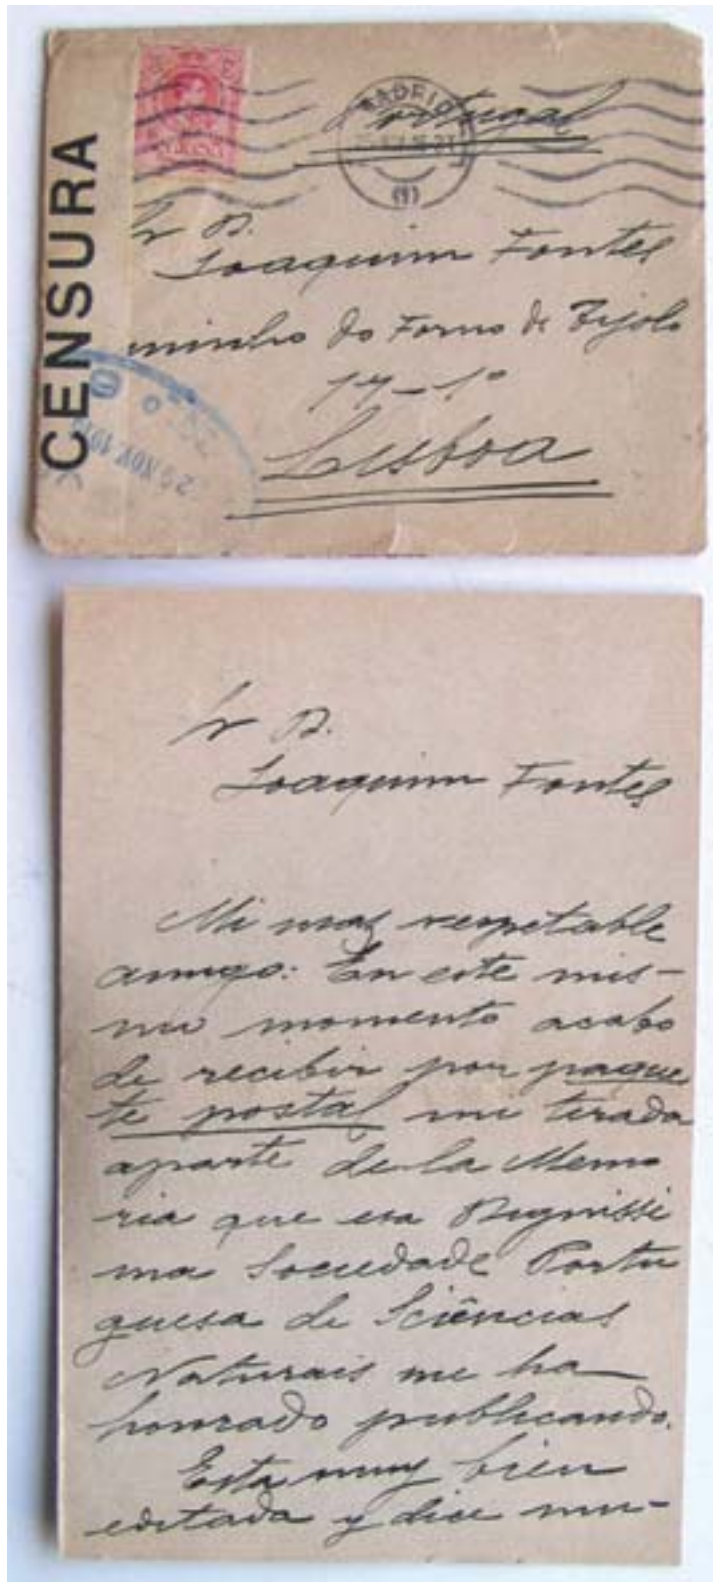 CENSURA
MADRID
Portugal
(9)
Sr D.
Joaquim Fontes
minho do Forno de Tijolo
17-1º
Lisboa
29 NOV. 191
Sr D.
Joaquim Fontes
Mi mas respetable
amigo: En este mis-
mo momento acabo
de recibir por paque
te postal mi tirada
aparte de la Memo
ria que esa Dignissi
ma Sociedade Portu
guesa de Sciências
Naturais me ha
honrado publicando.
Esta muy bien
editada y dice mu-